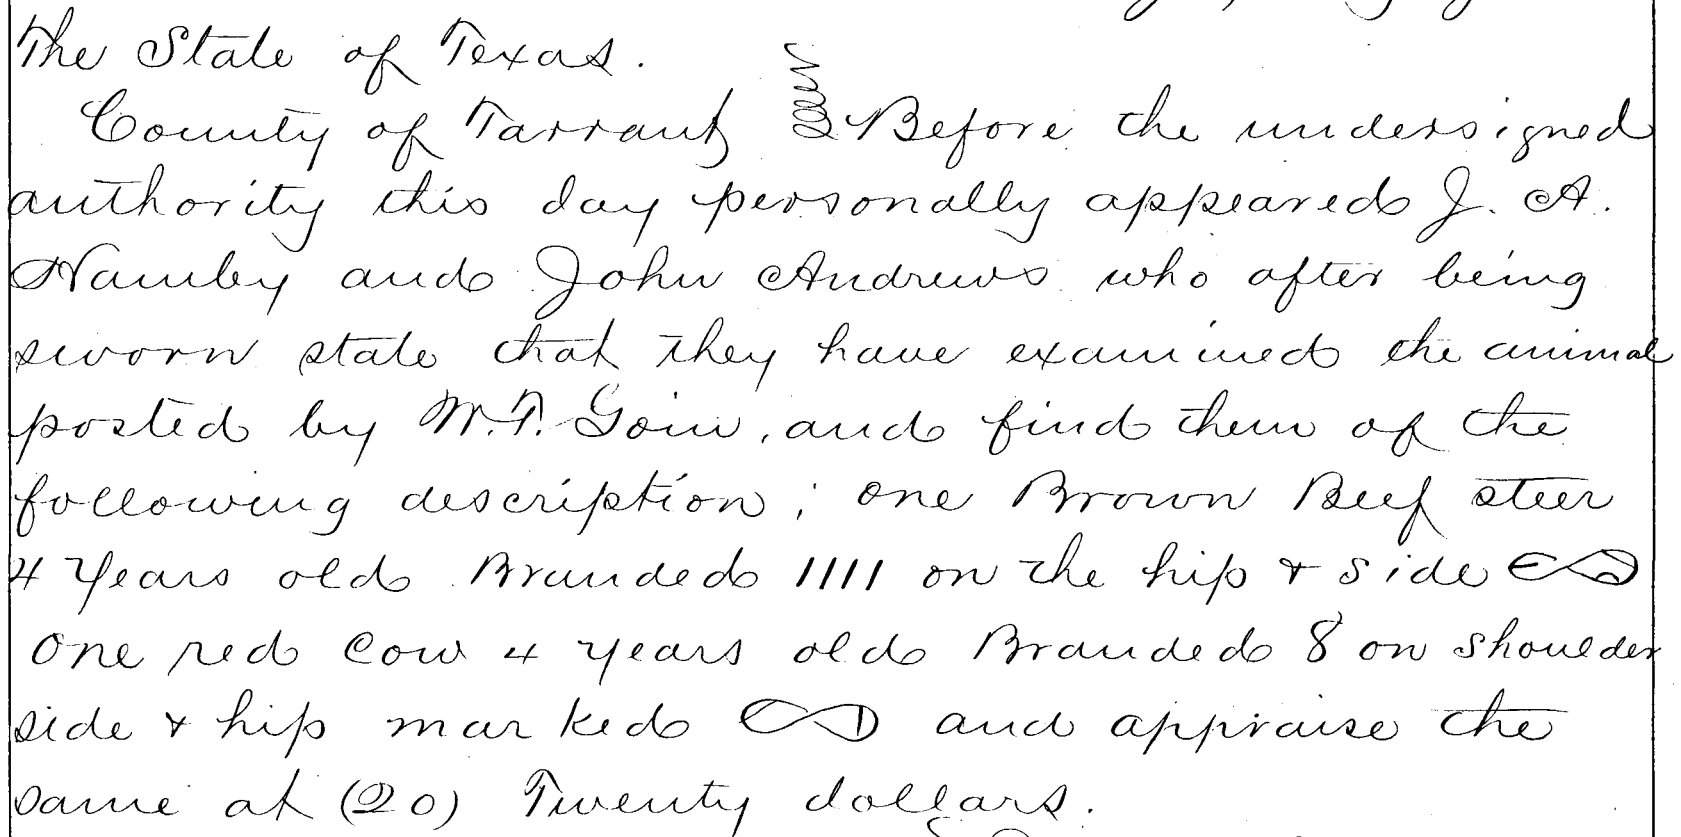 The State of Texas.
County of Tarrant Before the undersigned
authority this day personally appeared J. A.
Hamby and John Andrews who after being
sworn state that they have examined the animal
posted by W.T. Goin, and find them of the
following description; one Brown Beef steer
4 Years old Branded 1111 on the hip & side
One red Cow 4 years old Branded 8 on shoulder
side & hip marked and appraise the
same at (20) Twenty dollars.